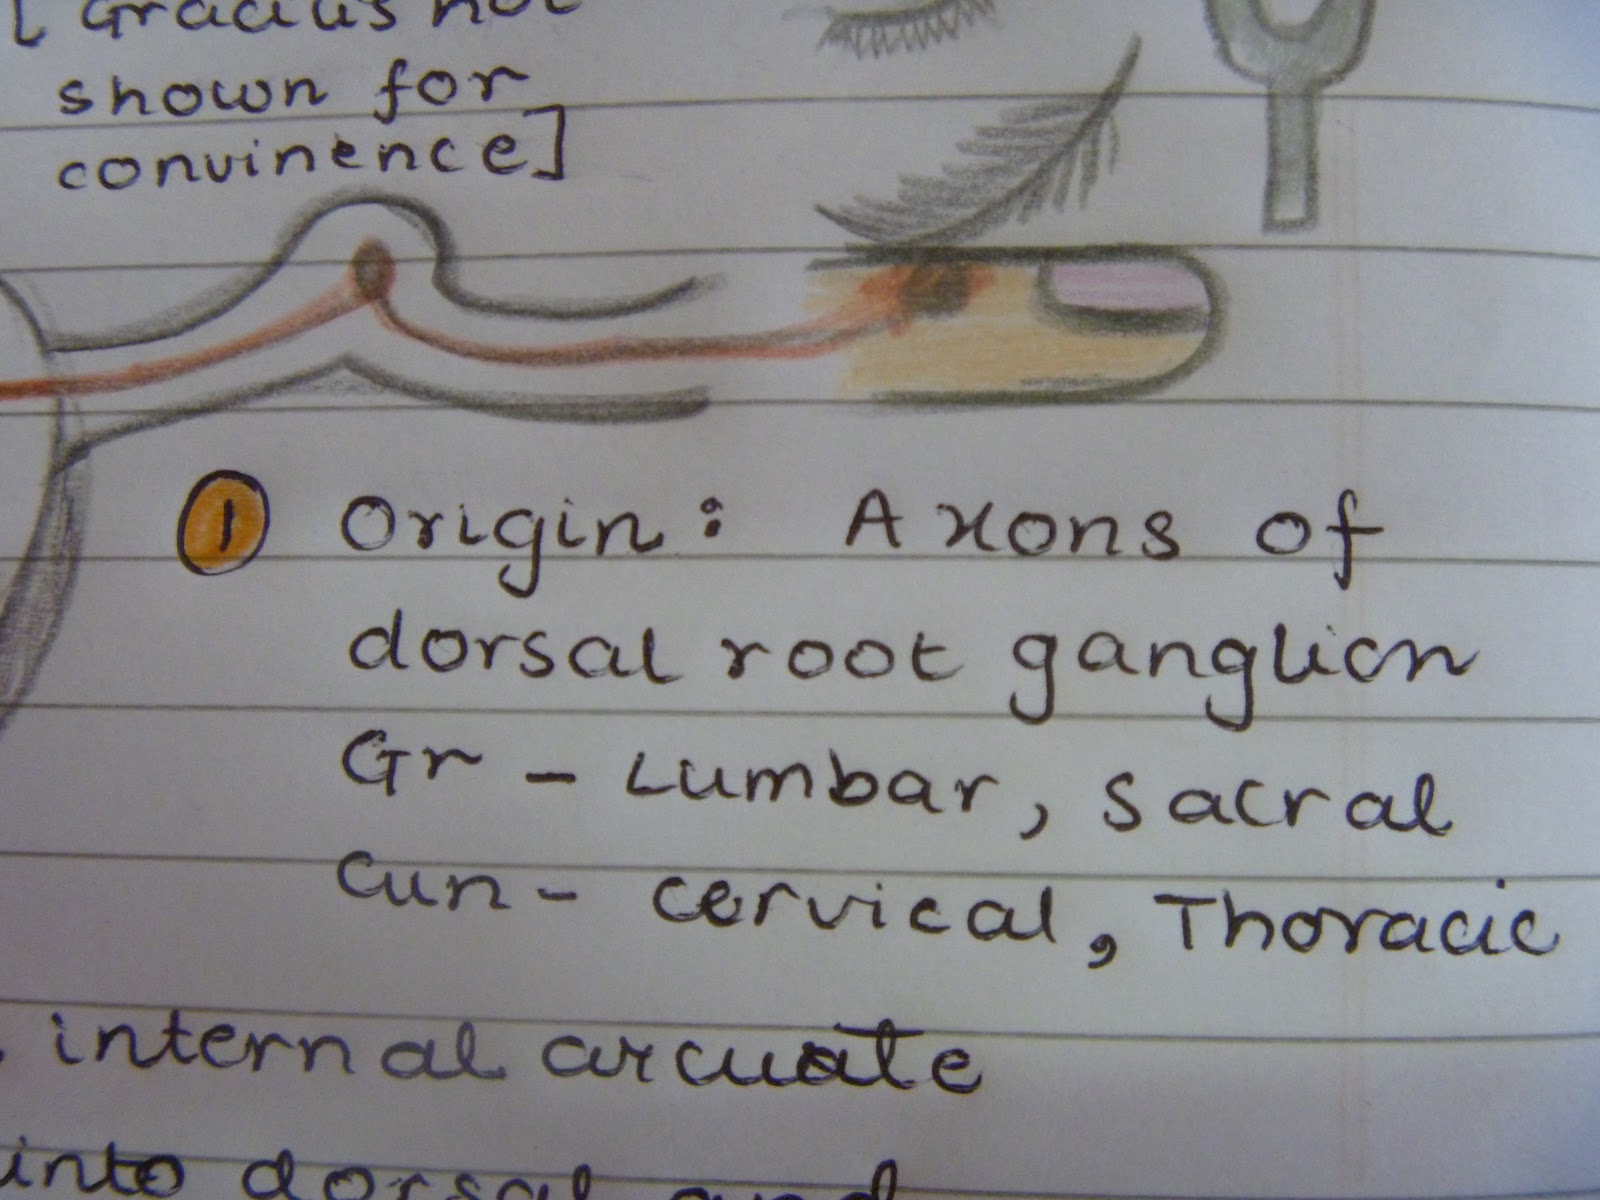 [Gracilis not
shown for
convinence]
1 Origin: Axons of
dorsal root ganglion
Gr - Lumbar, Sacral
Cun - cervical, Thoracic
internal arcuate
into dorsal and